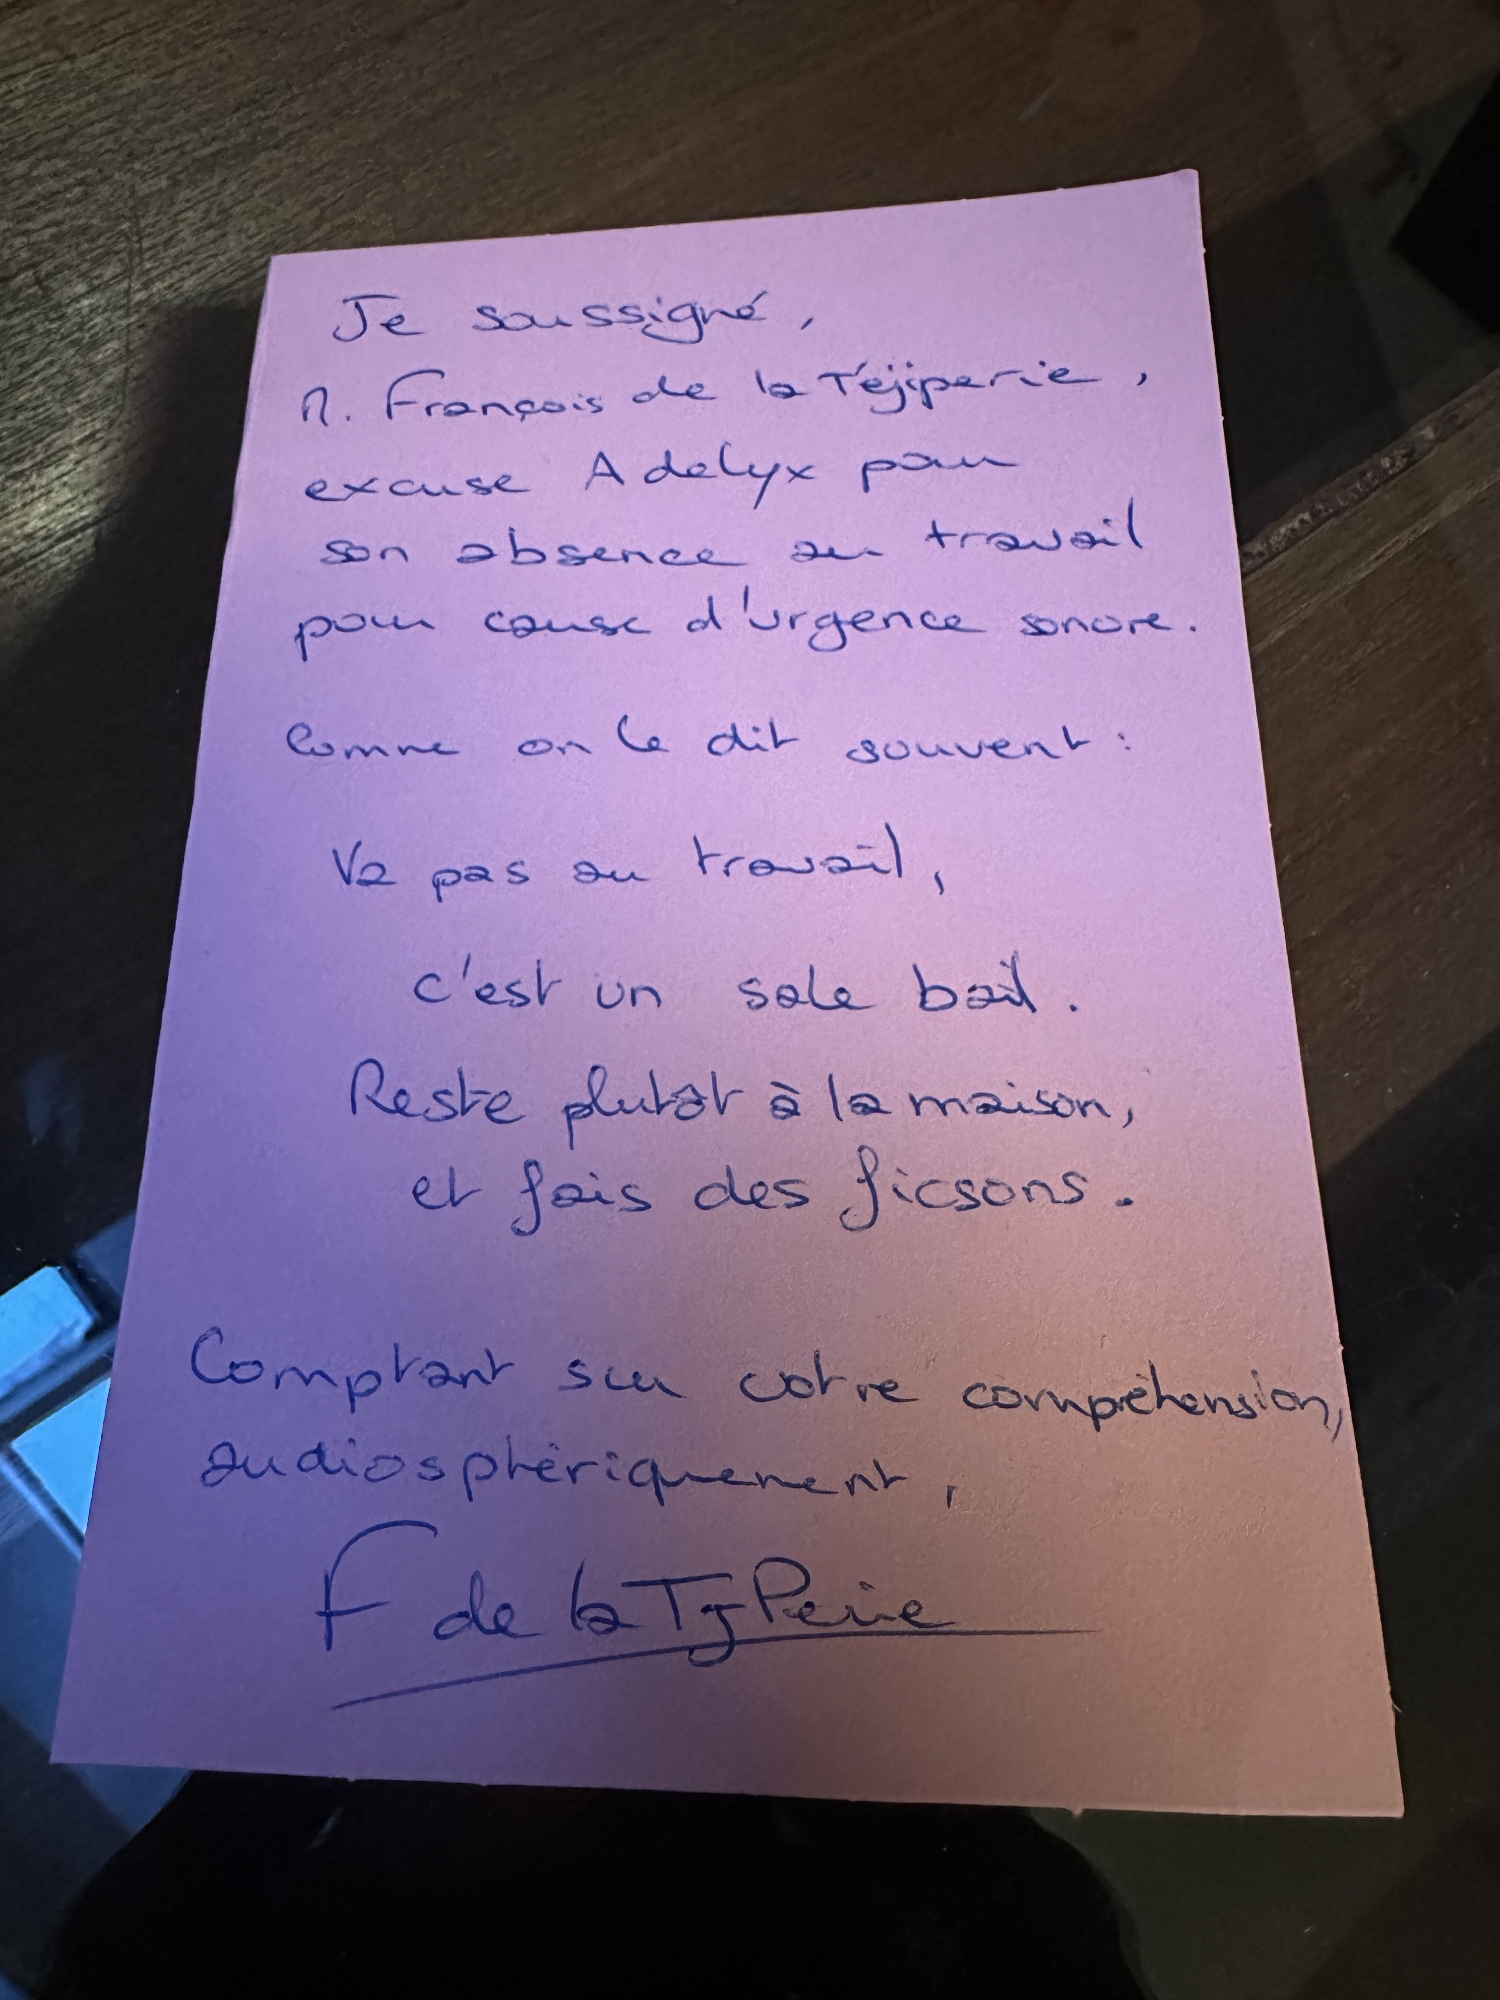 Je soussigné,
M. François de la Téjiperie,
excuse Adelyx pour
son absence au travail
pour cause d'urgence sonore.
Comme on le dit souvent :
Va pas au travail,
c'est un sale bail.
Reste plutôt à la maison,
et fais des ficsons.
Comptant sur votre compréhension,
audiosphériquement,
F de la TJPerie